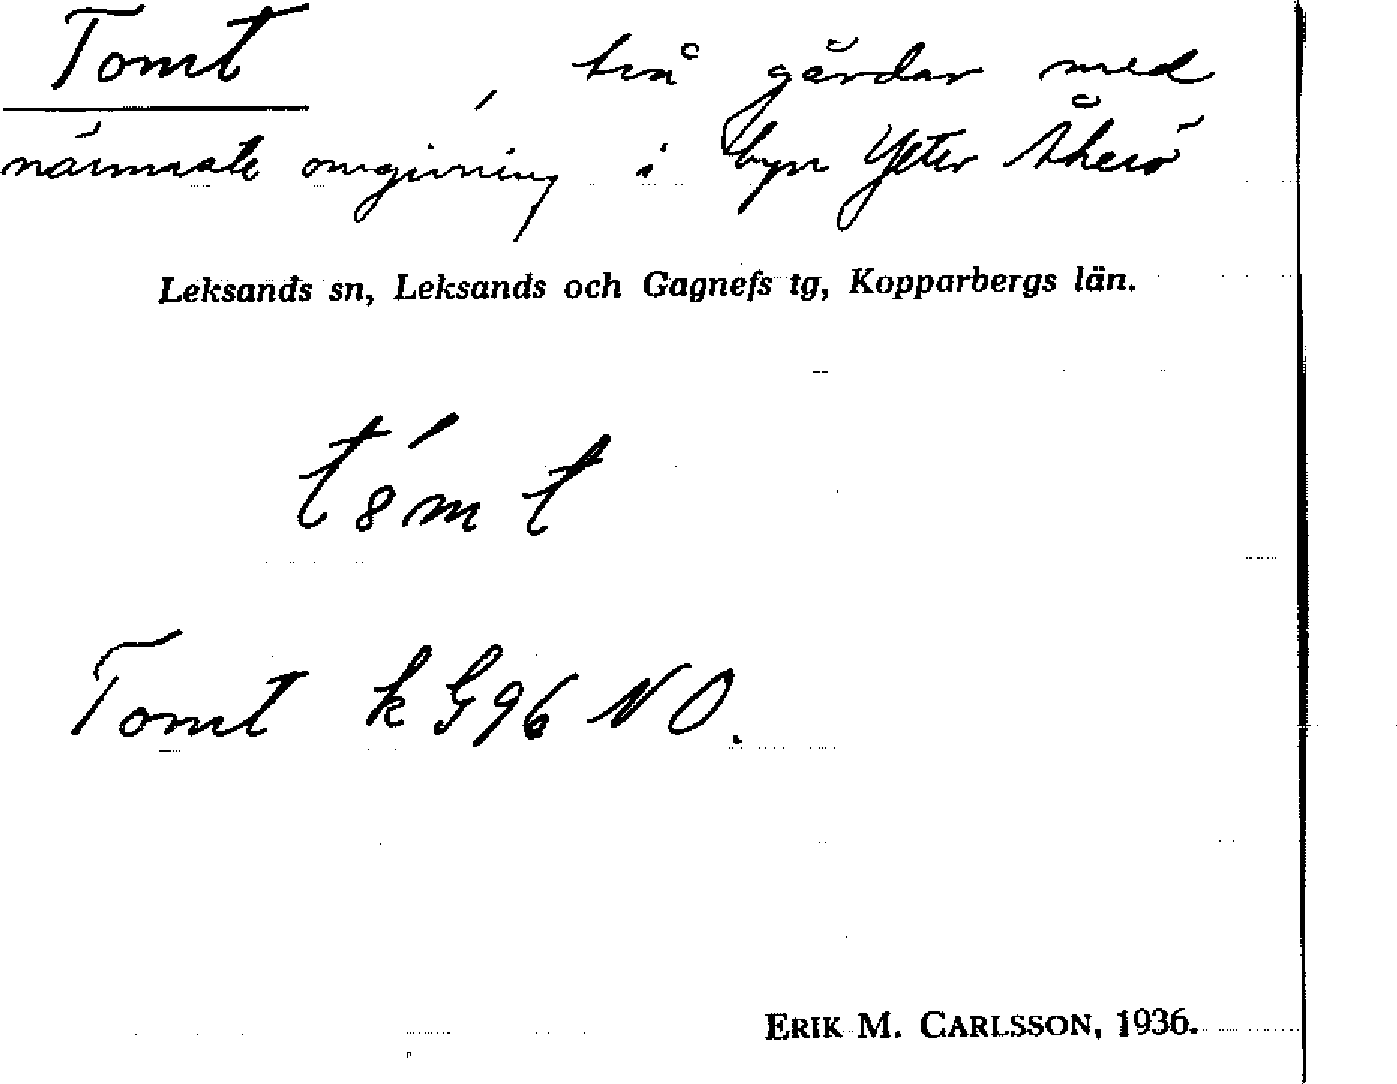 Tomt, två gårdar med
närmaste omgivning i byn Ytter Åkerö
Leksands sn, Leksands och Gagnefs tg, Kopparbergs län.
t8́mt
Tomt k G96 NO.
ERIK M. CARLSSON, 1936.